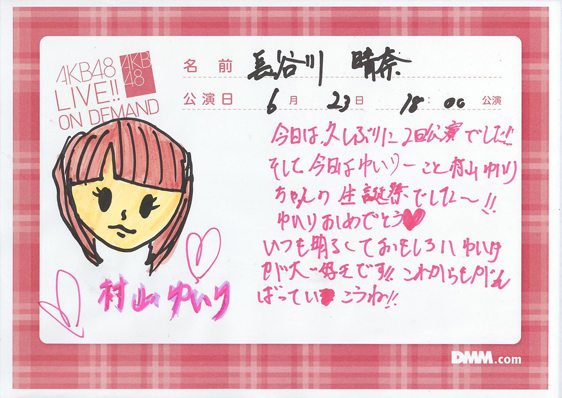 AKB48
LIVE!!
ON DEMAND
AKB
48
名前 長谷川 晴奈
公演日 6月23日 18:00 公演
今日は久しぶりに2回公演でした!!
そして今日はゆいりーこと村山ゆいり
ちゃんの生誕祭でした〜!!
ゆいりおめでとう♥
いつも明るくておもしろいゆいり
が大好きです!! これからもがん
ばっていこうね!!
村山ゆいり
DMM.com